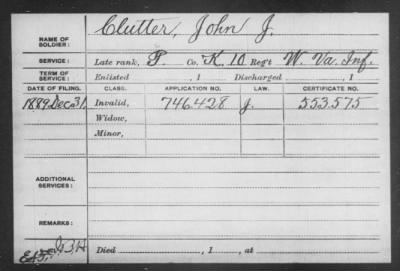 NAME OF SOLDIER: Clutter, John J.
SERVICE: Late rank, P. Co. K, 10 Reg't W. Va. Inf.
TERM OF SERVICE: Enlisted , 1 Discharged , 1
DATE OF FILING. CLASS. APPLICATION NO. LAW. CERTIFICATE NO.
1889 Dec 31 Invalid, 746.428 J. 553.575
Widow,
Minor,
ADDITIONAL SERVICES:
REMARKS:
Died , 1 , at